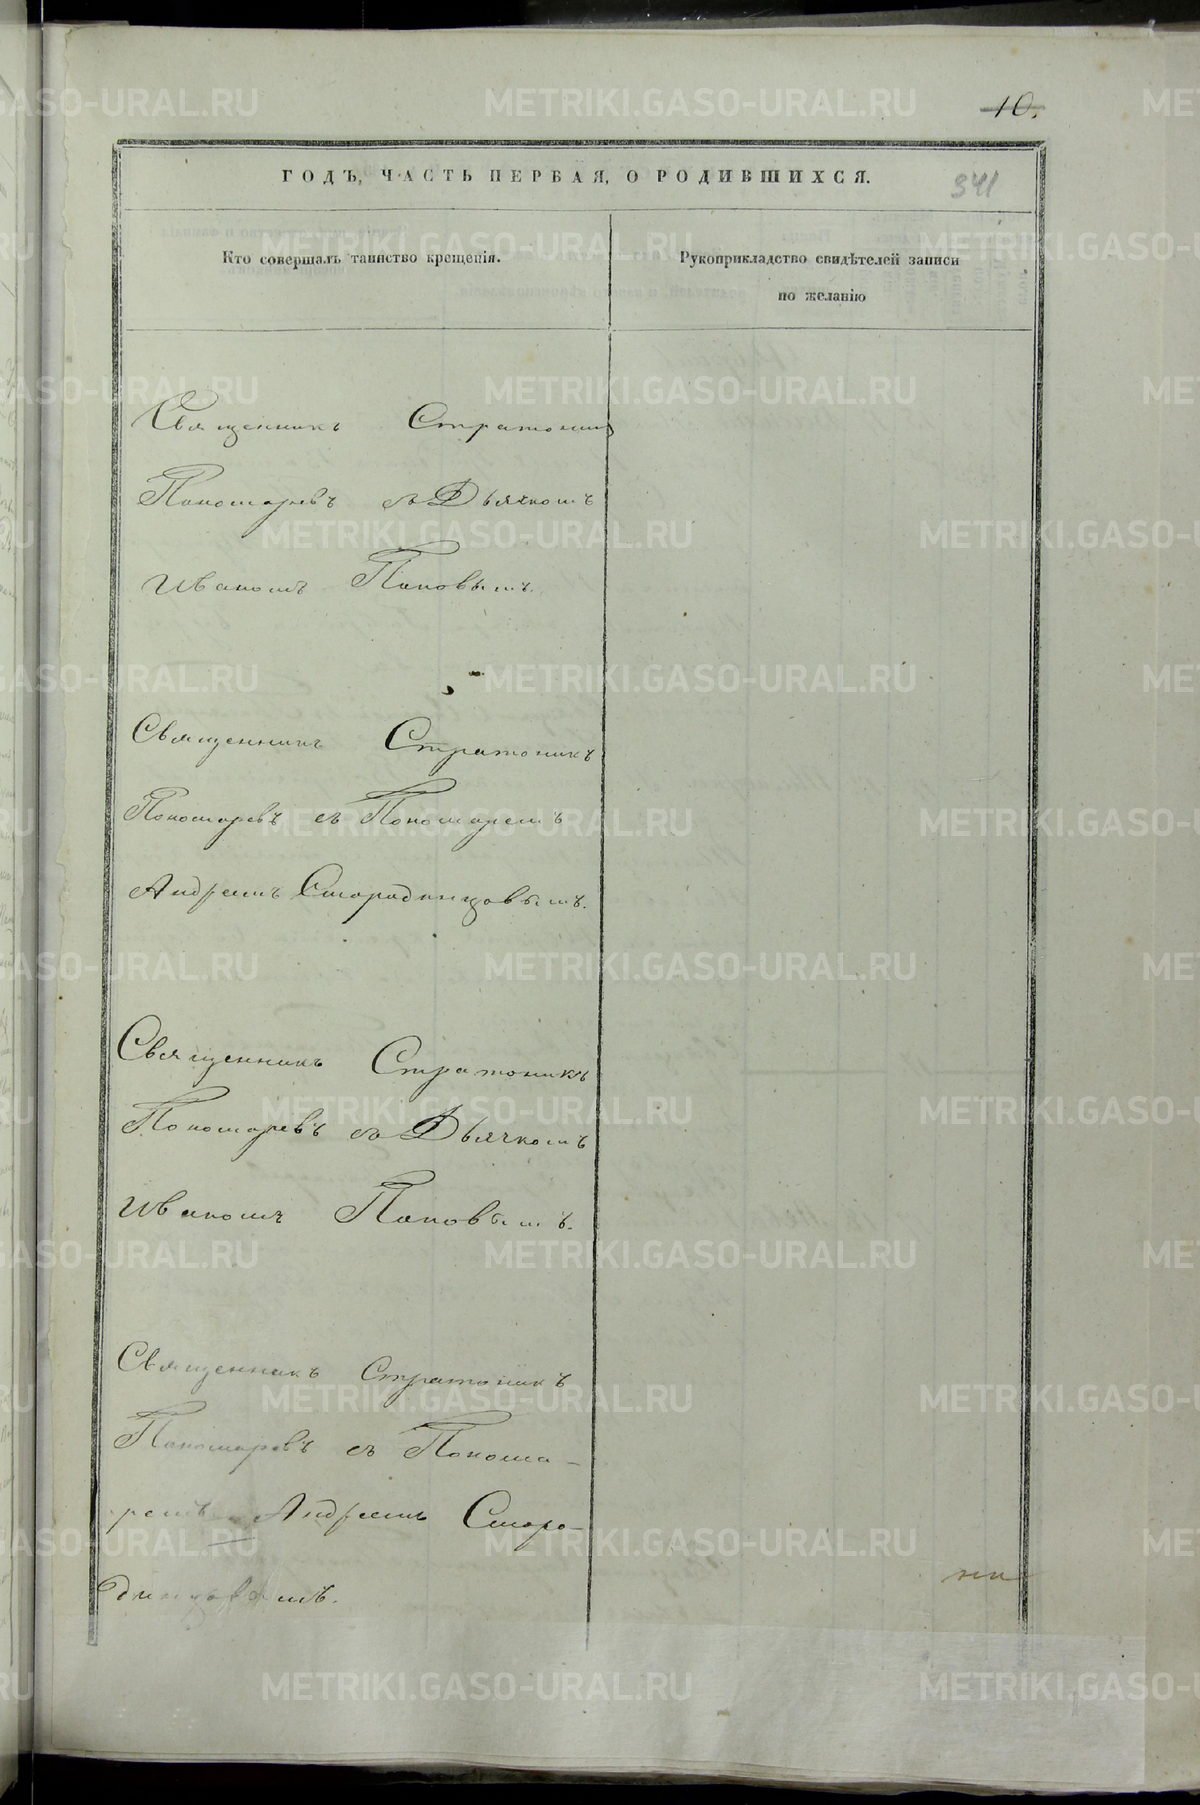 10.
ГОДЪ, ЧАСТЬ ПЕРВАЯ, О РОДИВШИХСЯ.
341
Кто совершалъ таинство крещенія.
Рукоприкладство свидѣтелей записи
по желанію
Священникъ Стратоникъ
Пономаревъ съ Дьячкомъ
Иваномъ Поповымъ.
Священникъ Стратоникъ
Пономаревъ съ Пономаремъ
Андреемъ Смородинцовымъ.
Священникъ Стратоникъ
Пономаревъ съ Дьячкомъ
Иваномъ Поповымъ.
Священникъ Стратоникъ
Пономаревъ съ Понома-
ремъ Андреемъ Сморо-
динцовымъ.
METRIKI.GASO-URAL.RU